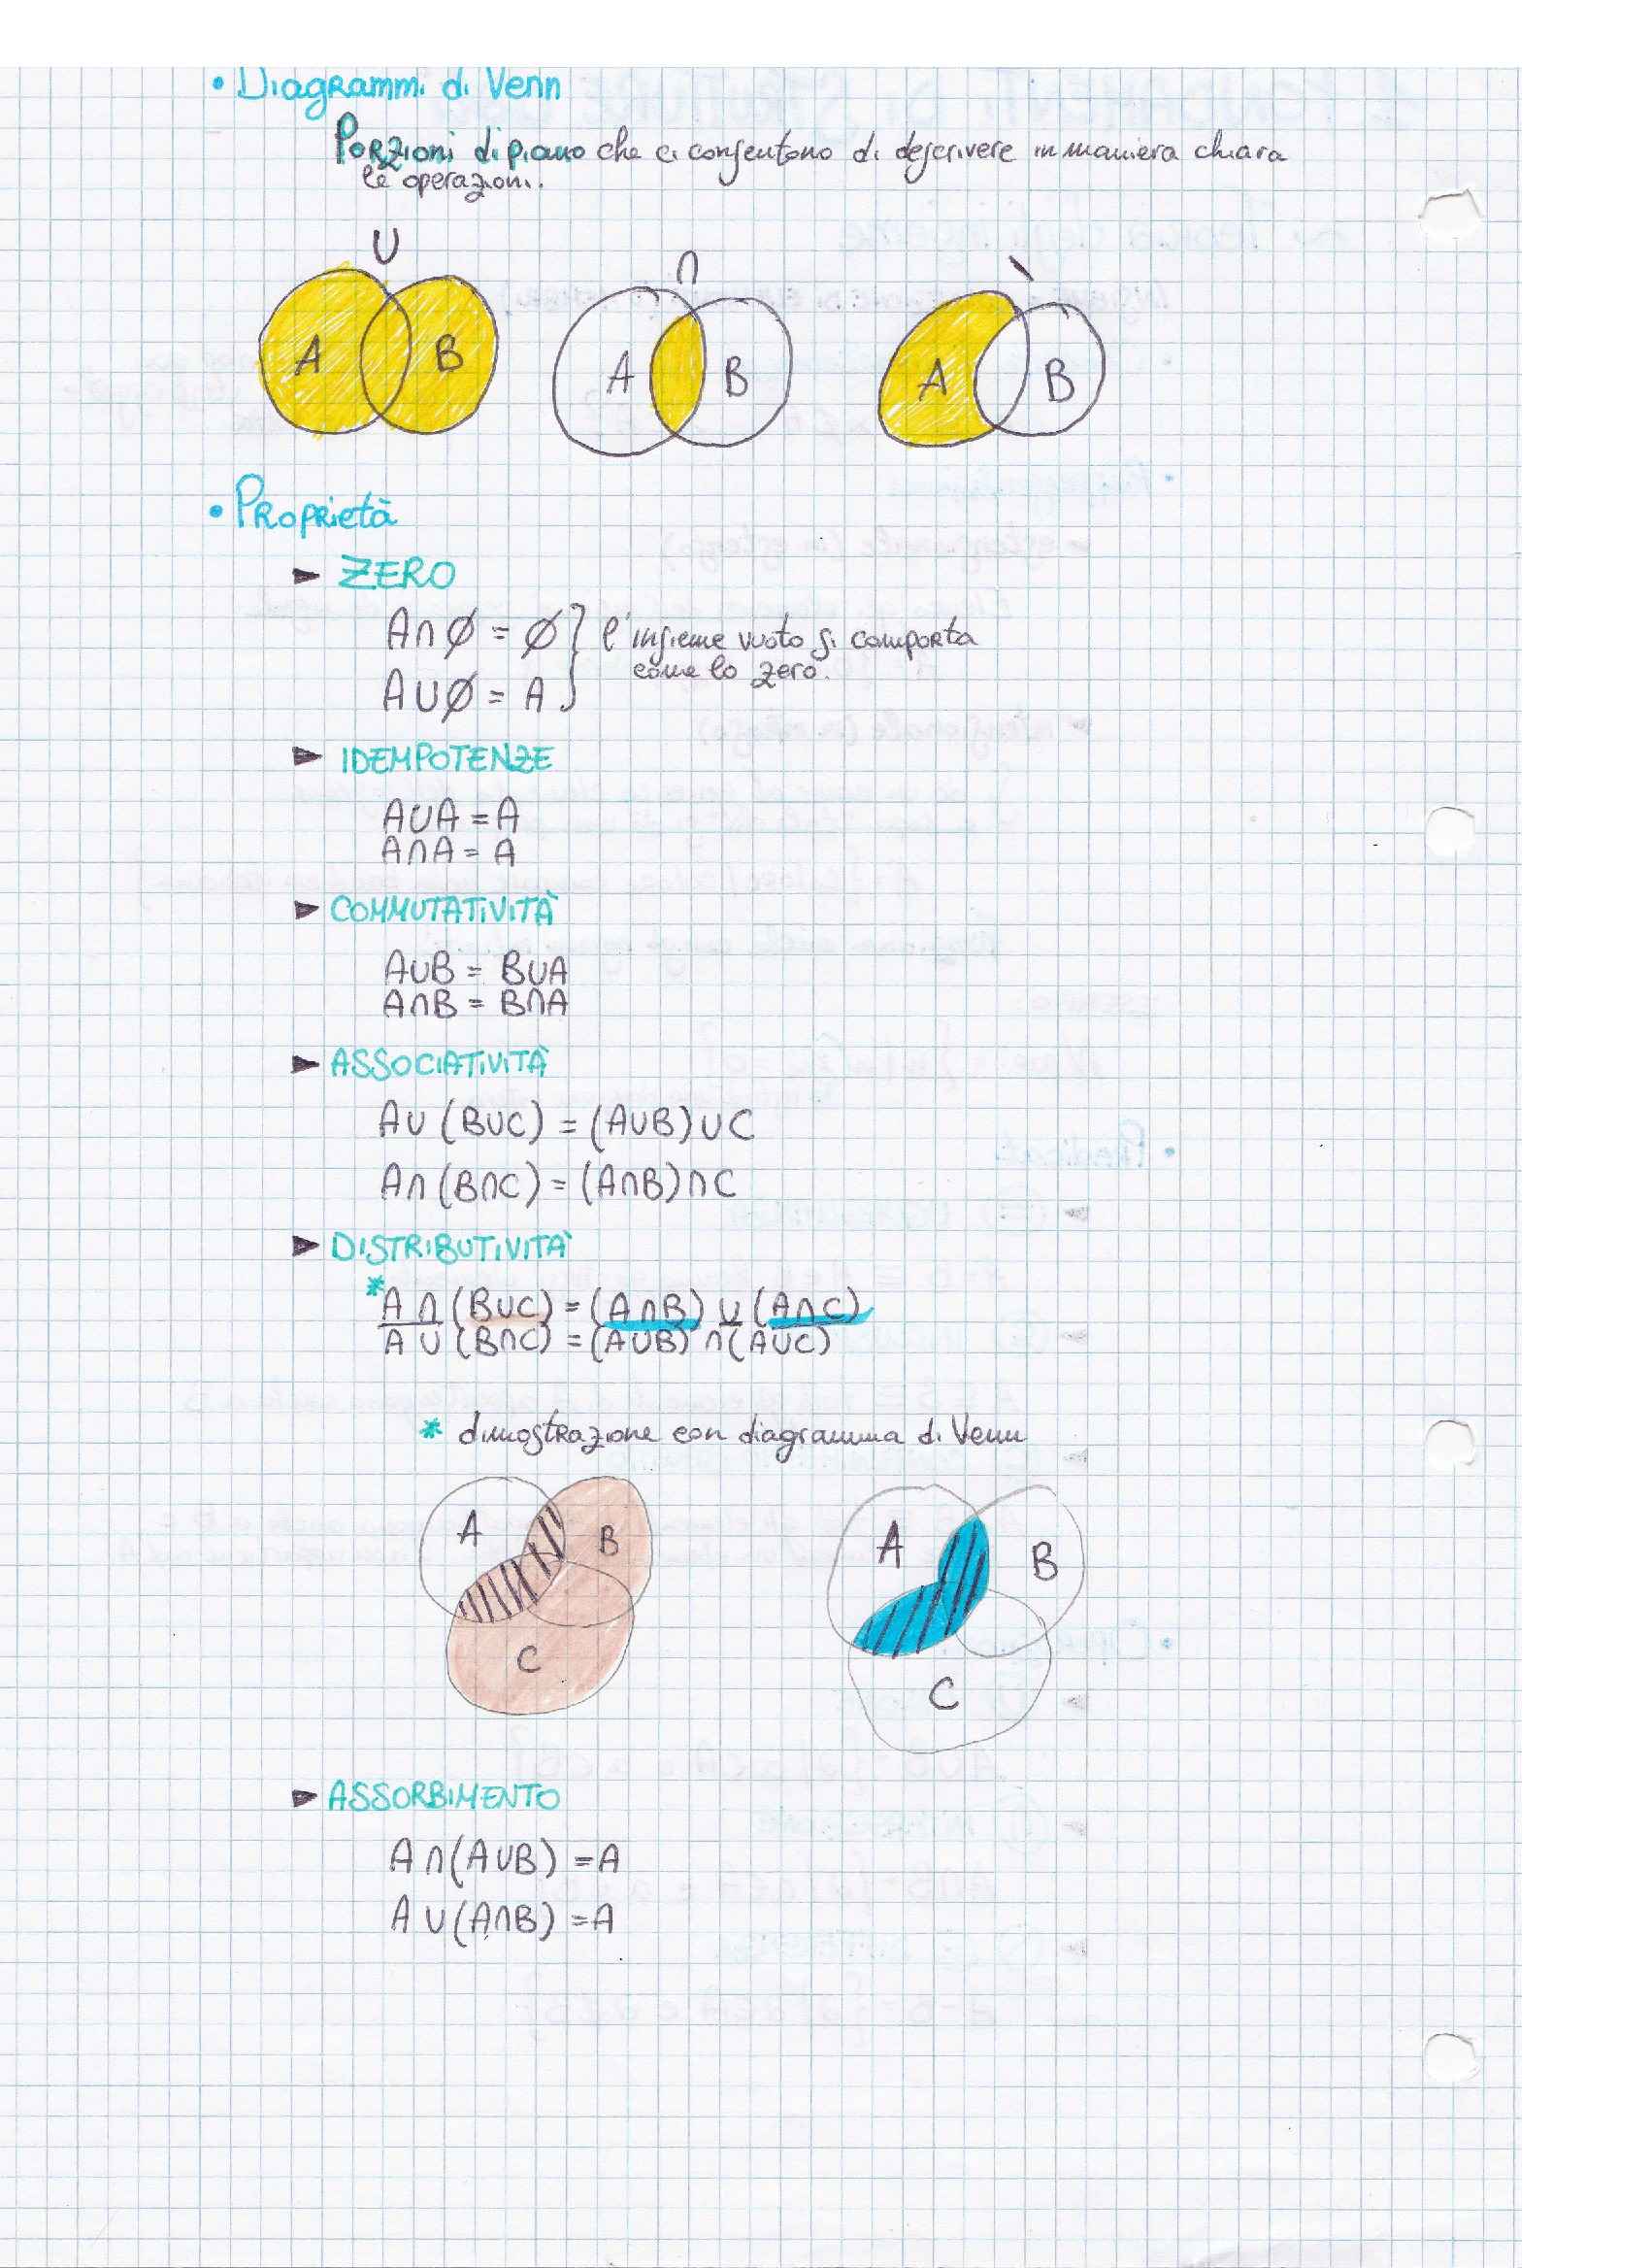 • Diagrammi di Venn
Porzioni di piano che ci consentono di descrivere in maniera chiara
le operazioni.
∪
∩
\
A B
A B
A B
• Proprietà
► ZERO
A∩∅ = ∅ } l'insieme vuoto si comporta
come lo zero.
A∪∅ = A
► IDEMPOTENZE
A∪A = A
A∩A = A
► COMMUTATIVITÀ
A∪B = B∪A
A∩B = B∩A
► ASSOCIATIVITÀ
A∪(B∪C) = (A∪B)∪C
A∩(B∩C) = (A∩B)∩C
► DISTRIBUTIVITÀ
* A∩(B∪C) = (A∩B) ∪ (A∩C)
A∪(B∩C) = (A∪B)∩(A∪C)
* dimostrazione con diagramma di Venn
A B
C
A B
C
► ASSORBIMENTO
A∩(A∪B) = A
A∪(A∩B) = A